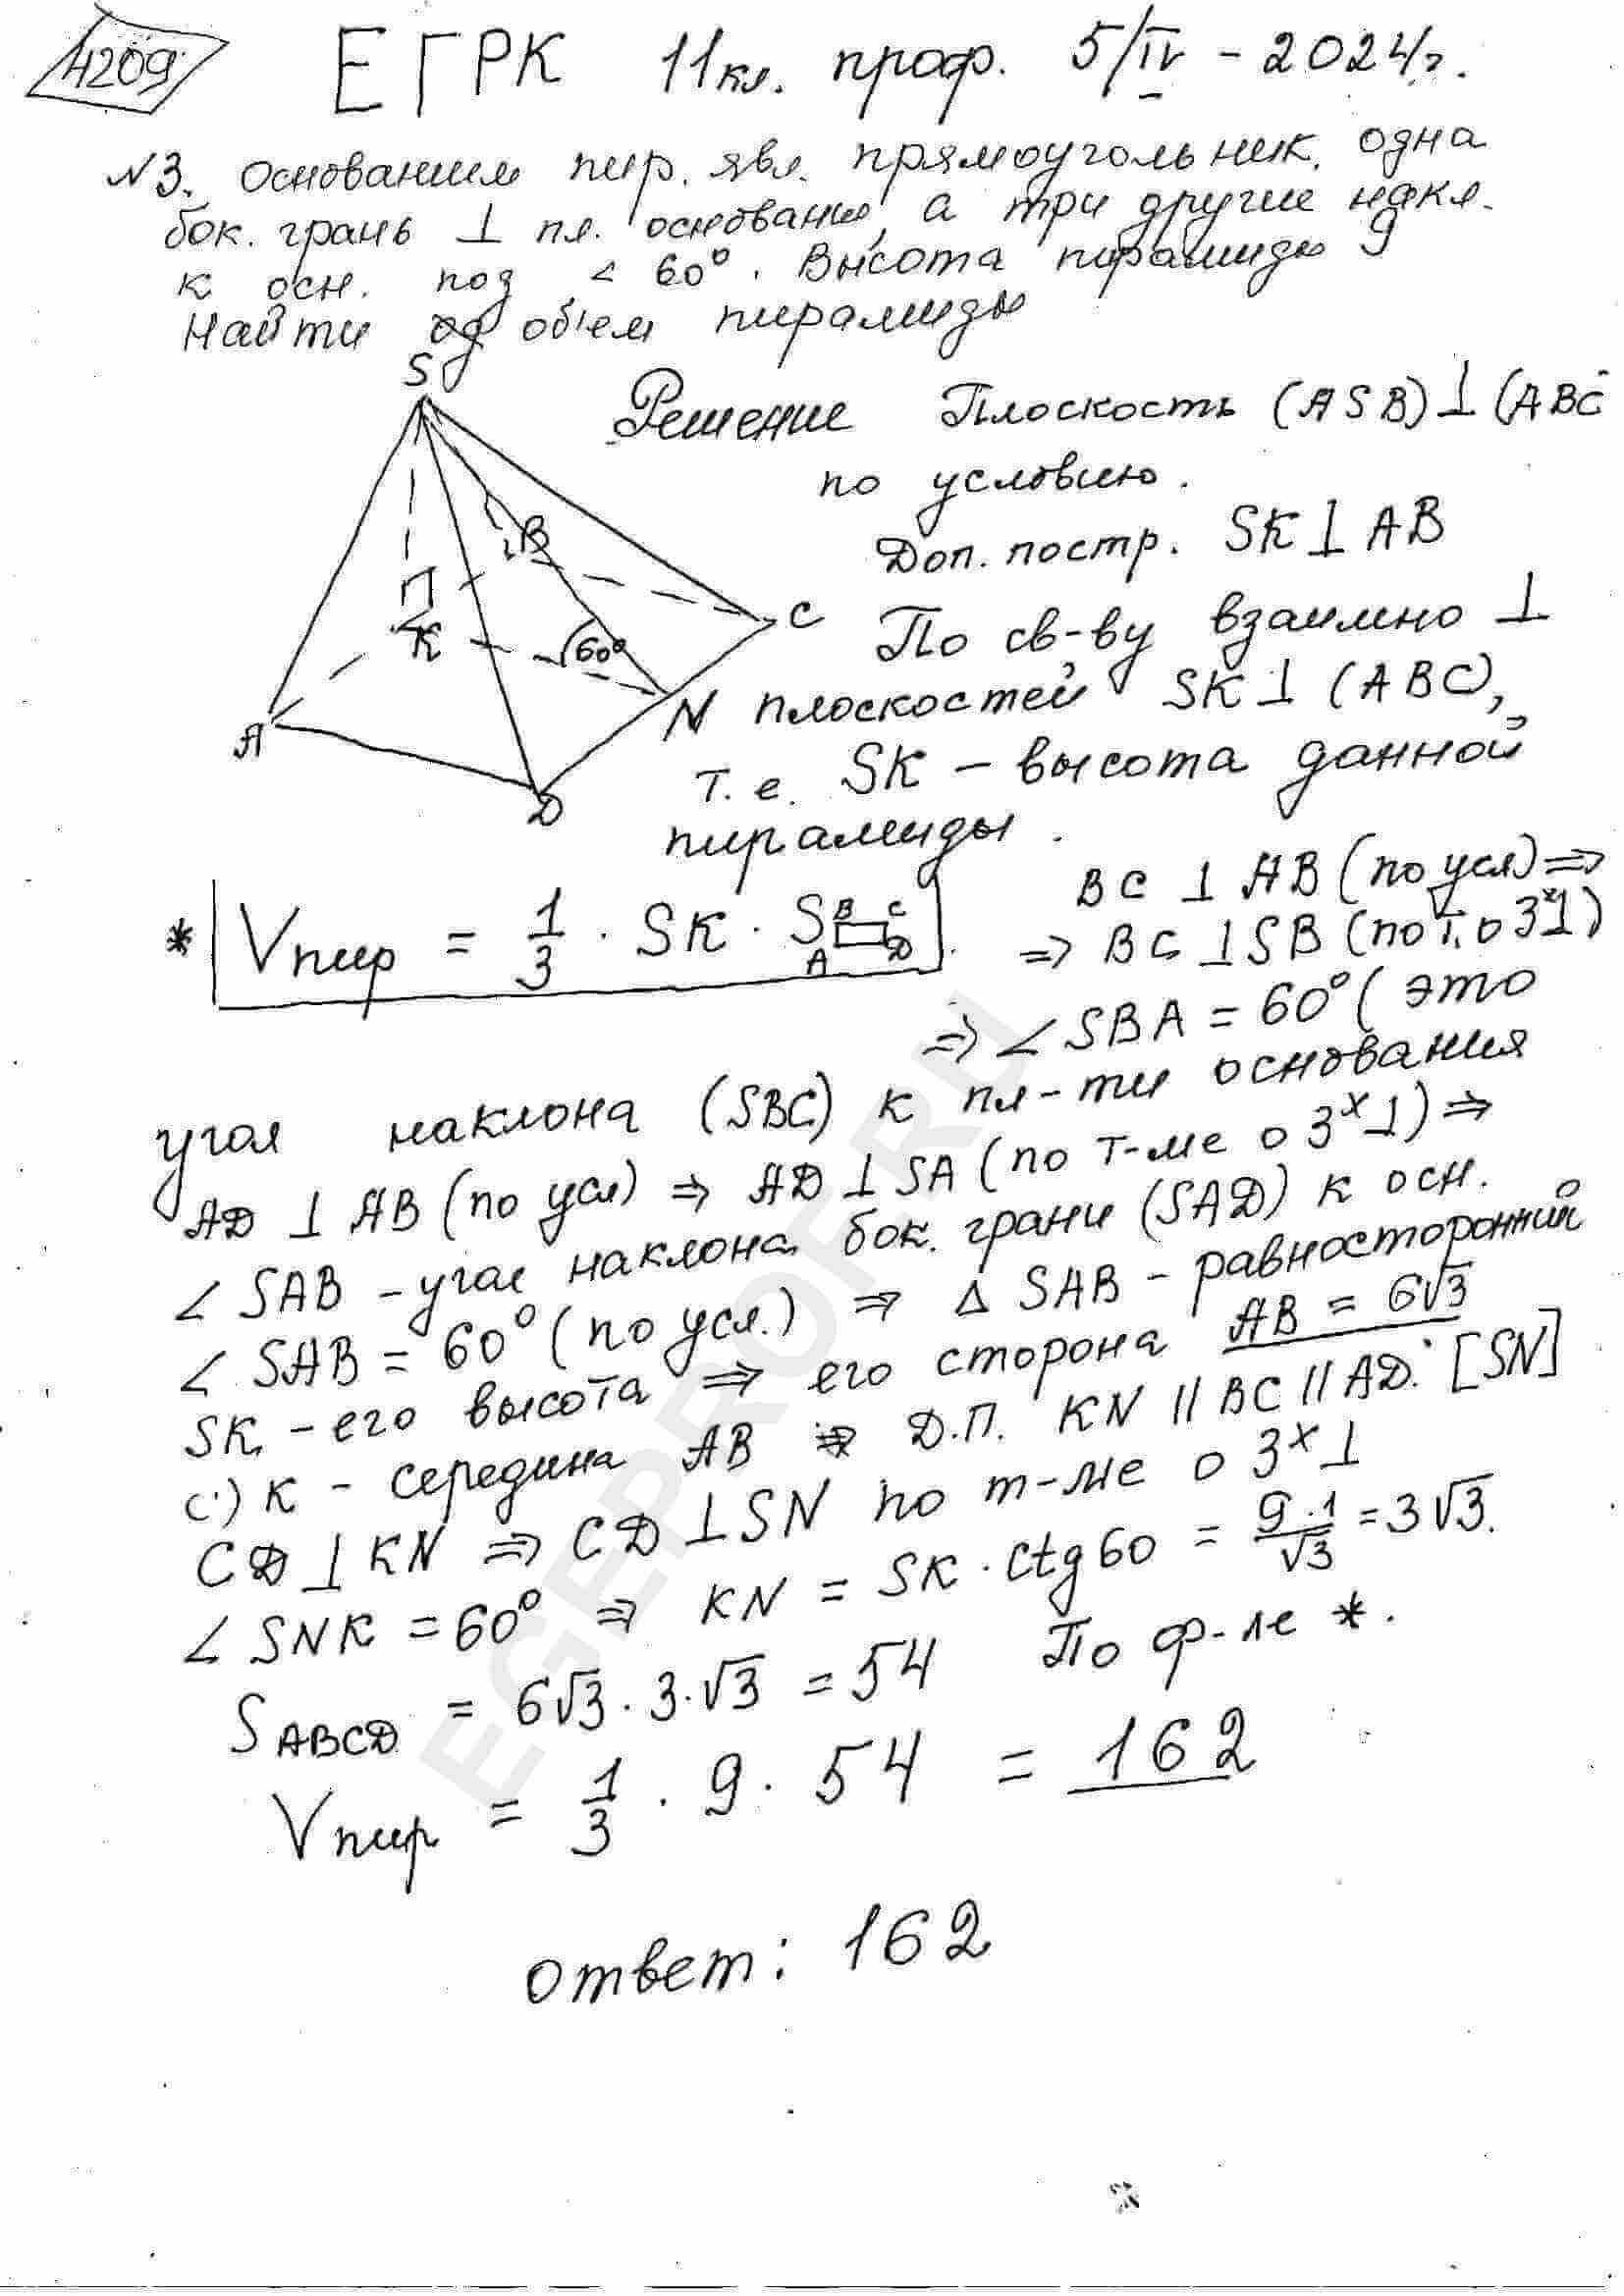 4209
ЕГРК 11кл. проф. 5/IV - 2024г.
№3. Основанием пир. явл. прямоугольник. одна
бок. грань ⊥ пл. основания, а три другие накл.
к осн. под ∠ 60°. Высота пирамиды 9
Найти объем пирамиды
S
Решение Плоскость (ASB) ⊥ (ABC
по условию.
Доп. постр. SK ⊥ AB
B
C
По св-ву взаимно ⊥
K 60°
N плоскостей SK ⊥ (ABC),
A
т.е. SK - высота данной
D
пирамиды.
BC ⊥ AB (по усл) ⇒
* Vпир = 1/3 · SK · S B C A D
⇒ BC ⊥ SB (по т. о 3х⊥)
⇒ ∠SBA = 60° (это
угол наклона (SBC) к пл-ти основания
AD ⊥ AB (по усл) ⇒ AD ⊥ SA (по т-ме о 3х⊥) ⇒
∠SAB - угол наклона бок. грани (SAD) к осн.
∠SAB = 60° (по усл.) ⇒ Δ SAB - равносторонний
SK - его высота ⇒ его сторона AB = 6√3
(·) K - середина AB Д.П. KN || BC || AD. [SN]
CD ⊥ KN ⇒ CD ⊥ SN по т-ме о 3х⊥
∠SNK = 60° ⇒ KN = SK · ctg60 = 9·1/√3 = 3√3.
S ABCD = 6√3 · 3·√3 = 54 По ф-ле *.
Vпир = 1/3 · 9 · 54 = 162
ответ: 162
EGEPROF.RU